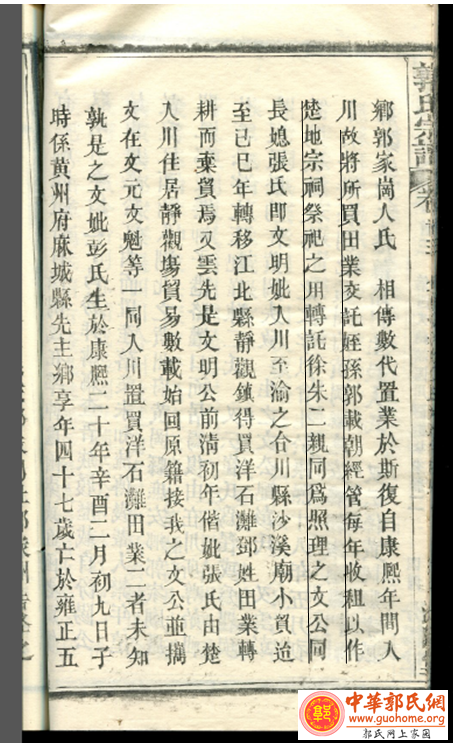 郭氏宗譜
鄉郭家崗人氏 相傳數代置業於斯復自康熙年間入
川故將所買田業交託姪孫郭載朝經管每年收租以作
楚地宗祠祭祀之用轉託徐朱二親同爲照理之文公同
長媳張氏即文明妣入川至渝之合川縣沙溪廟小貿迨
至己巳年轉移江北縣靜觀鎮得買洋石灘鄧姓田業車
耕而棄貿焉又雲先是文明公前清初年偕妣張氏由楚
入川住居靜觀塲貿易數載始回原籍接我之文公並攜
文在文元文魁等一同入川置買洋石灘田業二者未知
孰是之文妣彭氏生於康熙二十年辛酉二月初九日子
時係黃州府麻城縣先主鄉享年四十七歲亡於雍正五
中華郭氏網
www.guohome.org
郭氏网上家園